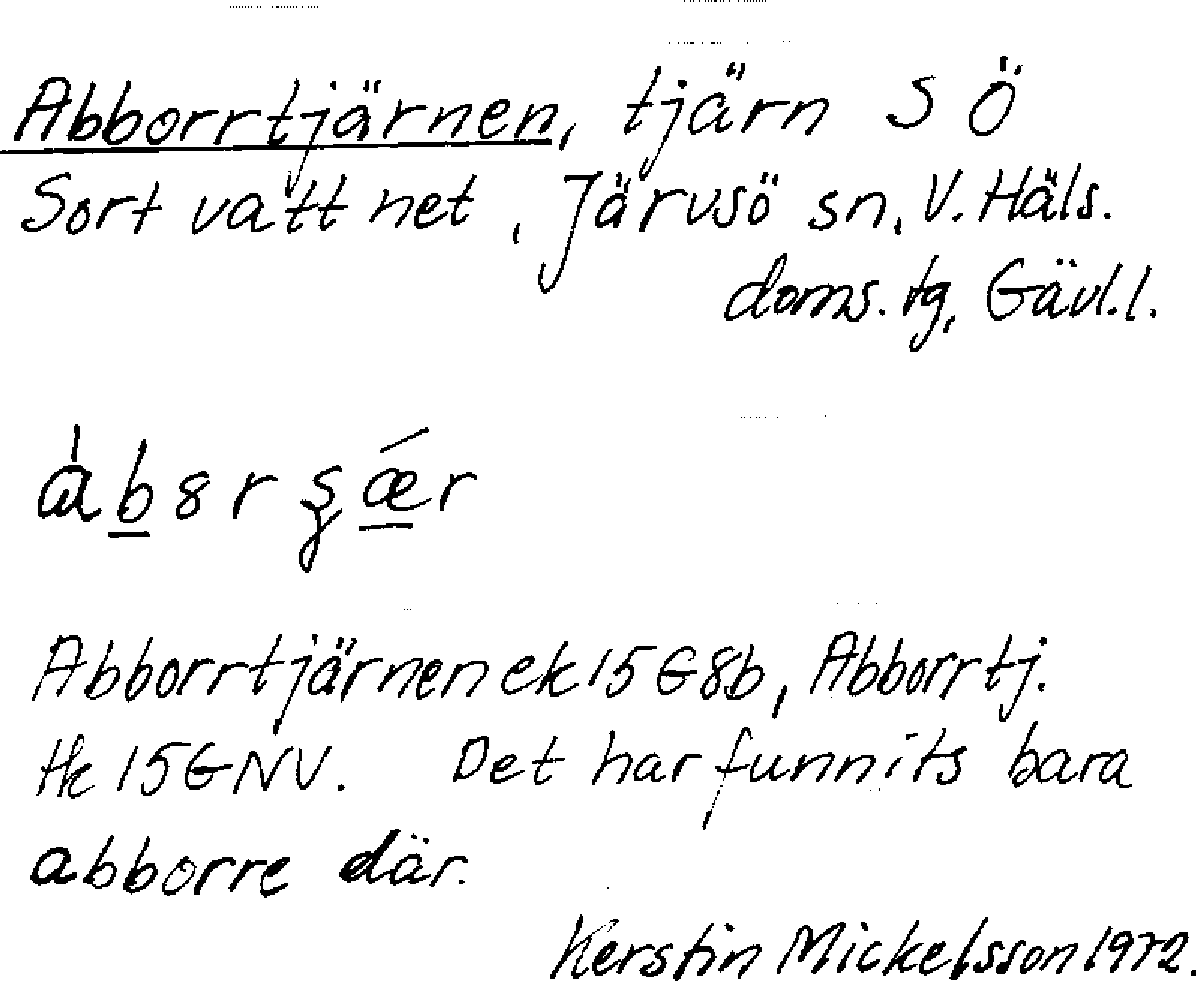 Abborrtjärnen, tjärn S Ö
Sort vattnet, Järvsö sn, V. Häls.
doms. tg, Gävl. l.
Abborrtjärnen ek 15G8b, Abborrtj.
Hc 15GNV. Det har funnits bara
abborre där.
Kerstin Mickelsson 1972.